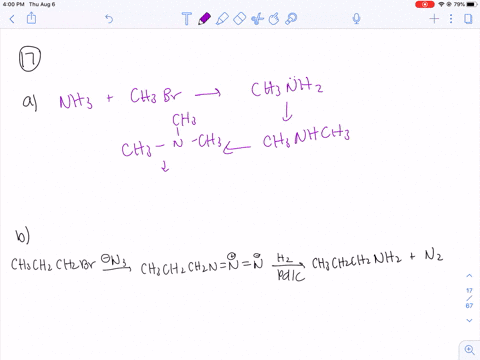 4:00 PM Thu Aug 6
79%
17
a) NH3 + CH3Br → CH3N̈H2
↓
CH3
|
CH3 – N – CH3 ← CH3NHCH3
↓
b)
CH3CH2CH2Br ⊖N3 → CH3CH2CH2N=N⊕=N⊖ H2 Pd/C → CH3CH2CH2NH2 + N2
17
67